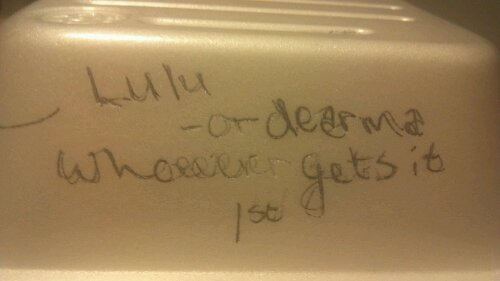 Lulu
-or deerma
Whoeever gets it
1st